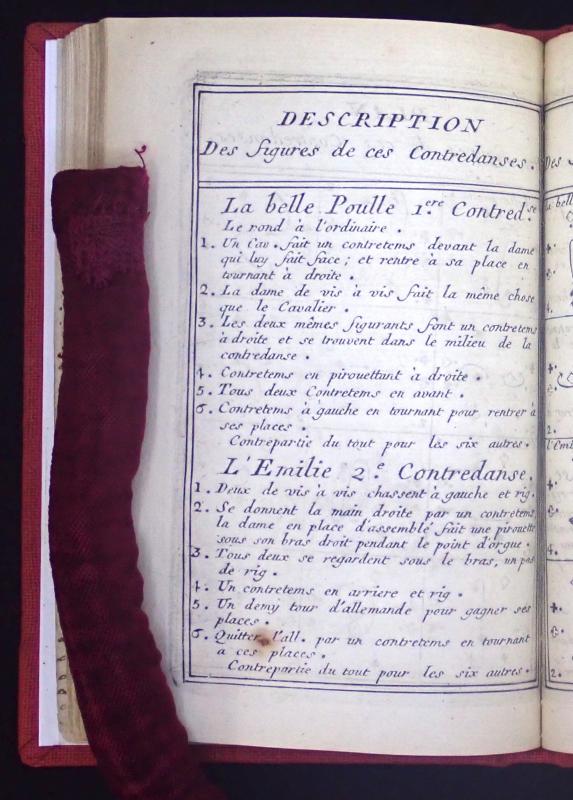 DESCRIPTION
Des figures de ces Contredanses.
La belle Poulle 1.ere Contred.se
Le rond à l'ordinaire.
1. Un Cav. fait un contretems devant la dame
qui luy fait face; et rentre à sa place en
tournant à droite.
2. La dame de vis à vis fait la même chose
que le Cavalier.
3. Les deux mêmes figurants font un contretems
à droite et se trouvent dans le milieu de la
contredanse.
4. Contretems en pirouettant à droite.
5. Tous deux Contretems en avant.
6. Contretems à gauche en tournant pour rentrer à
ses places.
Contrepartie du tout pour les six autres.
L'Emilie 2.e Contredanse.
1. Deux de vis à vis chassent à gauche et rig.
2. Se donnent la main droite par un contretems,
la dame en place d'assemblé fait une pirouette
sous son bras droit pendant le point d'orgue.
3. Tous deux se regardent sous le bras, un pas
de rig.
4. Un contretems en arriere et rig.
5. Un demy tour d'allemande pour gagner ses
places.
6. Quitter l'all. par un contretems en tournant
a ces places.
Contrepartie du tout pour les six autres.